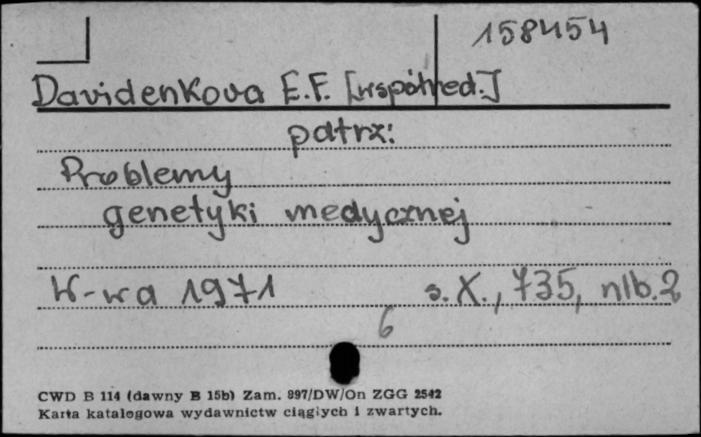 158454
Davidenkova E.F. [współred.]
patrz:
Problemy
genetyki medycznej
W-wa 1971 s. X., 735, nlb. 2
6
CWD B 114 (dawny B 15b) Zam. 997/DW/On ZGG 2542
Karta katalogowa wydawnictw ciągłych i zwartych.